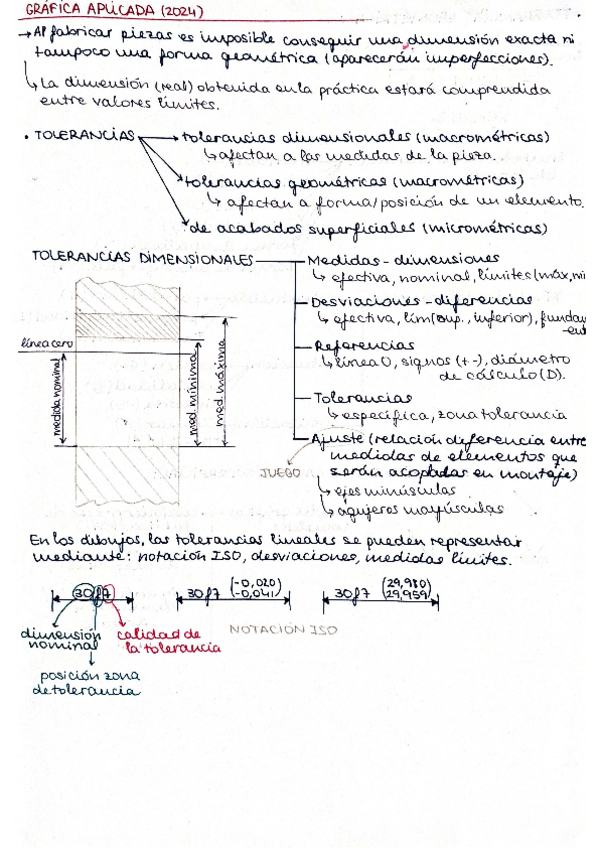 GRÁFICA APLICADA (2024)
→ Al fabricar piezas es imposible conseguir una dimensión exacta ni
tampoco una forma geométrica (aparecerán imperfecciones).
↳ La dimensión (real) obtenida en la práctica estará comprendida
entre valores límites.
• TOLERANCIAS → tolerancias dimensionales (macrométricas)
↳ afectan a las medidas de la pieza.
tolerancias geométricas (macrométricas)
↳ afectan a forma/posición de un elemento.
de acabados superficiales (micrométricas)
TOLERANCIAS DIMENSIONALES
Medidas - dimensiones
↳ efectiva, nominal, límites (máx, mi
Desviaciones - diferencias
↳ efectiva, lím (sup., inferior), fundam
Referencias
↳ línea 0, signos (+ -), diámetro
de cálculo (D).
Tolerancias
↳ específica, zona tolerancia
Ajuste (relación diferencia entre
medidas de elementos que
serán acoplados en montaje)
JUEGO
↳ ejes minúsculas
↳ agujeros mayúsculas
línea cero
medida nominal
med. mínima
med. máxima
En los dibujos, las tolerancias lineales se pueden representar
mediante: notación ISO, desviaciones, medidas límites.
30 f7
30 f7 (-0,020
-0,041)
30 f7 (29,980
29,959)
dimensión
nominal
calidad de
la tolerancia
NOTACIÓN ISO
posición zona
de tolerancia